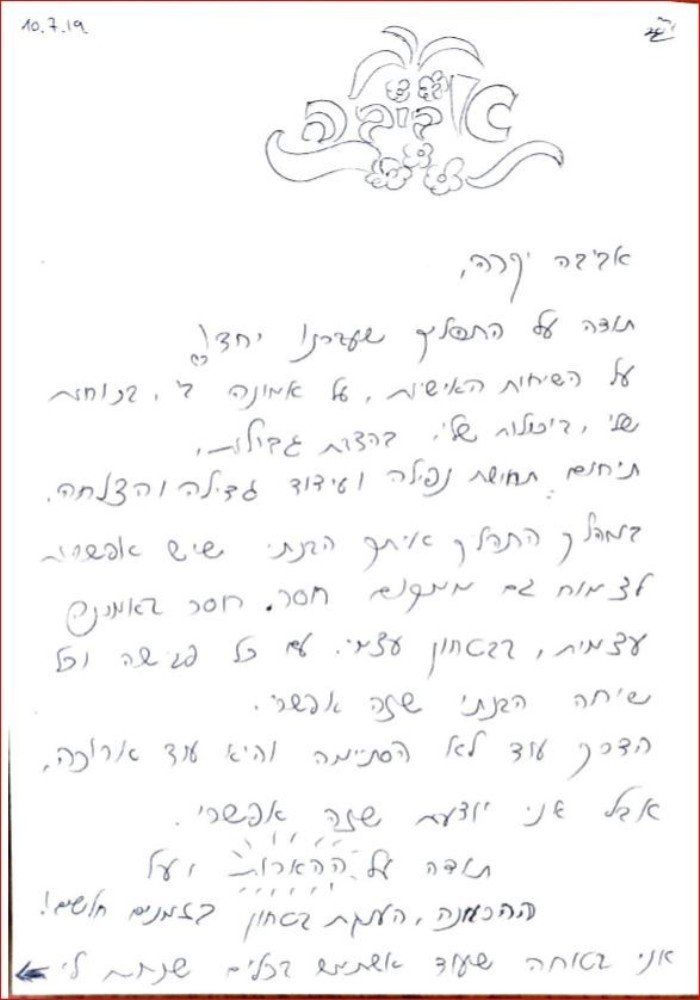 10.7.19
אביבה
אביבה יקרה,
תודה על התהליך שעברנו יחדיו
על השיחות האישיות, על אמונה בי, בכוחות
שלי, ביכולות שלי, בהצבת גבולות,
תיחום תחושת נפילה ועידוד גדילה והצלחה.
במהלך התהליך איתך הבנתי שיש אפשרות
לצמוח גם ממקום חסר. חוסר באמונה
עצמית, בבטחון עצמי. עם כל פגישה וכל
שיחה הבנתי שזה אפשרי.
הדרך עוד לא הסתיימה והיא עוד ארוכה,
אבל אני יודעת שזה אפשרי.
תודה על ההארות ועל
ההכוונה, הענקת בטחון בזמנים חלשים!
אני בטוחה שעוד אשתמש בכלים שנתת לי